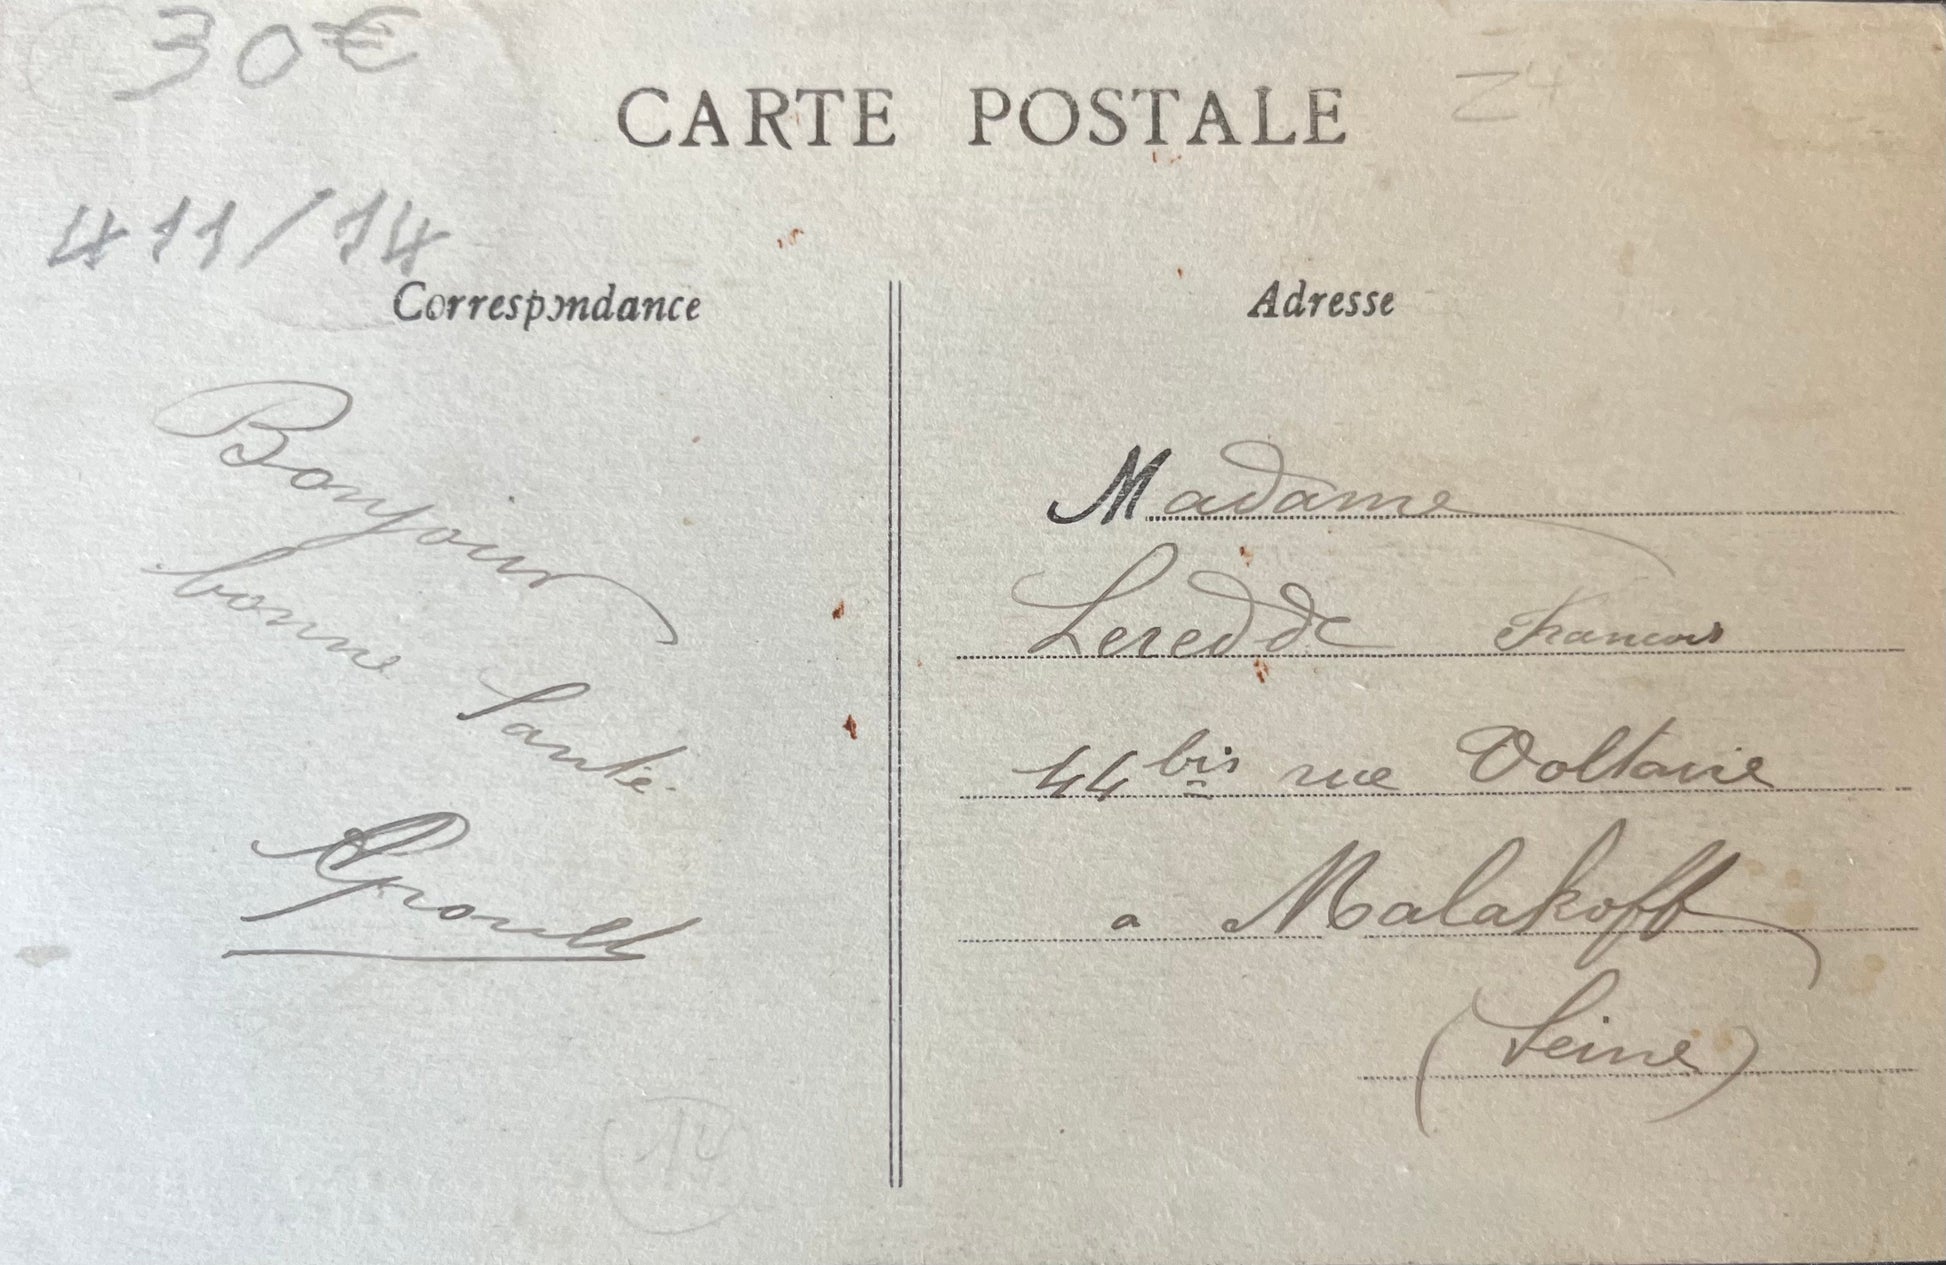 30€
CARTE POSTALE
411/14
Correspondance
Adresse
Bonjour
bonne Santé.
Groult
Madame
Leredde Francois
44 bis rue Voltaire
a Malakoff
(Seine)
14